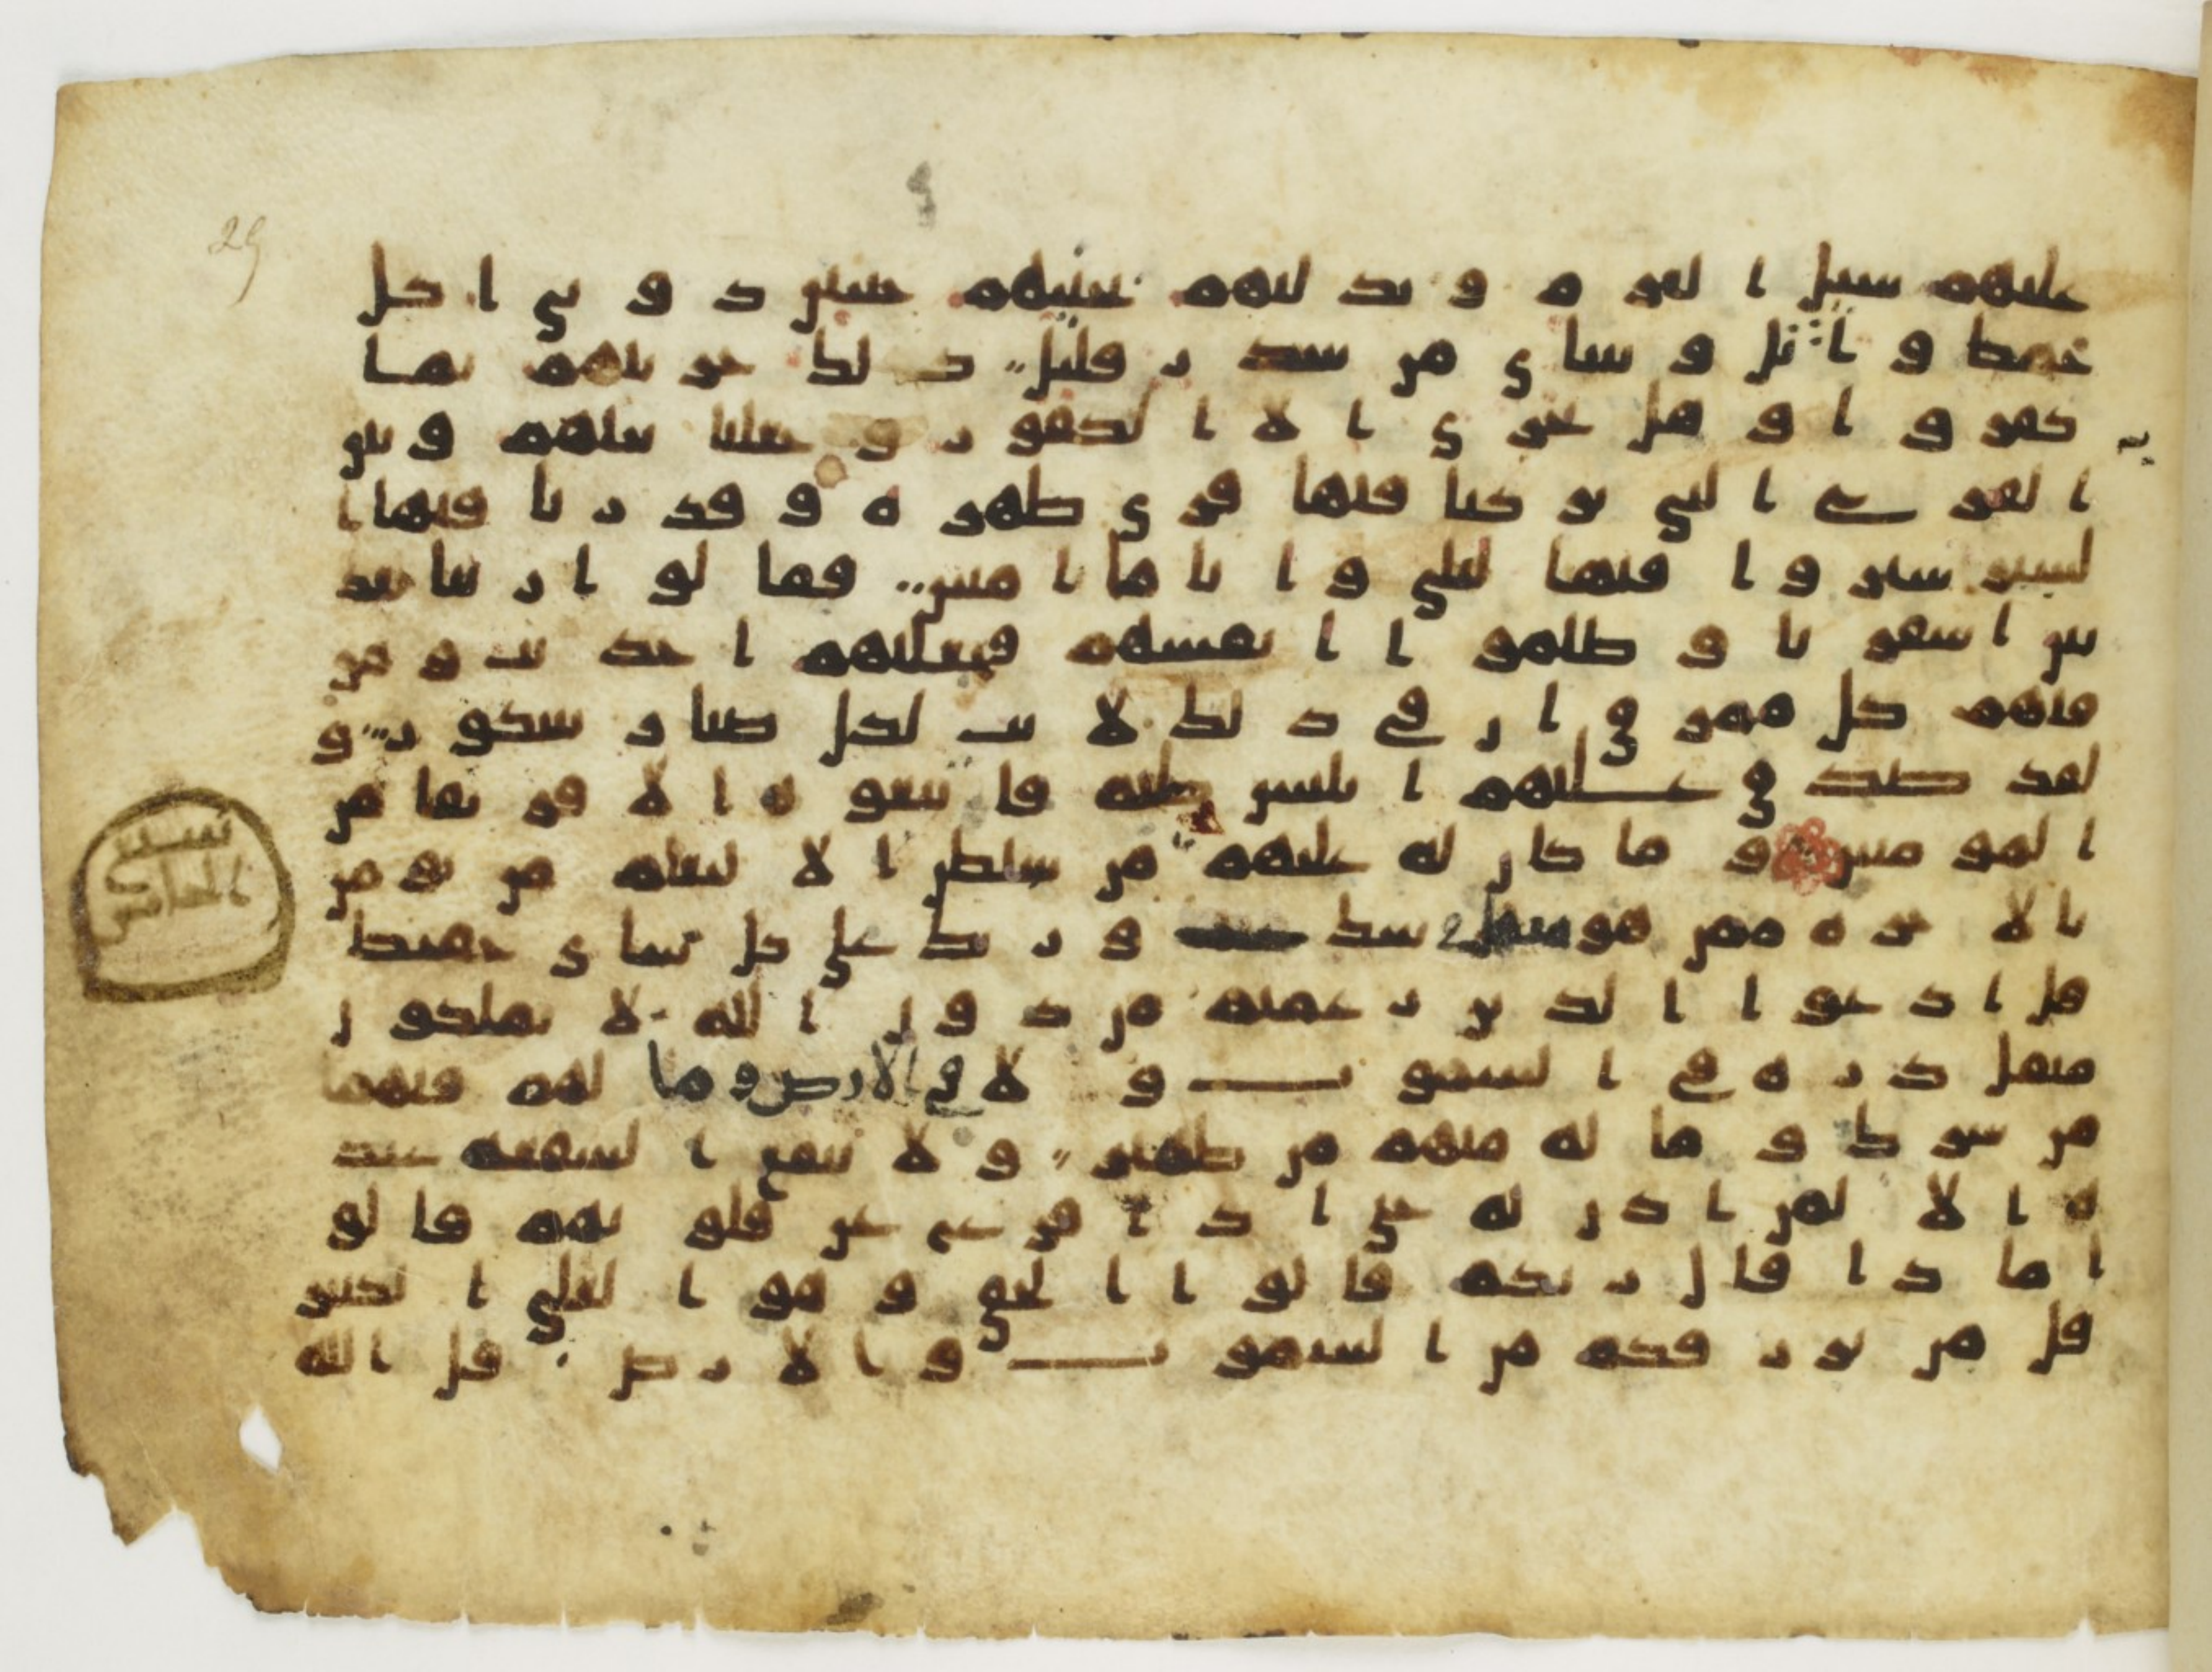 عليهم سيل العرم وبدلنهم بجنتيهم جنتين ذوتي اكل
خمط واثل وشاي من سدر قليل ذلك جزينهم بما
كفروا وهل يجزي الا الكفور وجعلنا بينهم وبين
القرى التي بركنا فيها قرى ظهرة وقدرنا فيها ا
لسير سيروا فيها ليلي واياما امنين فقالوا ربنا بعد
بين اسفرنا وظلموا ا انفسهم فجعلنهم احديث ومز
قنهم كل ممزق ان في ذلك لايت لكل صبار شكور و
لقد صدق عليهم ابليس ظنه فاتبعوه الا فريقا من
المومنين وما كان له عليهم من سلطن الا لنعلم من يومن
بالاخرة ممن هو منها في شك وربك على كل شاي حفيظ
قل ادعوا الذين زعمتم من دون الله لا يملكون
مثقل ذرة في السموت ولا في الارض وما لهم فيهما
من شرك وما له منهم من ظهير ولا تنفع الشفعة عند
ه الا لمن اذن له حتى اذا فزع عن قلوبهم قالو
ا ماذا قال ربكم قالوا الحق وهو العلي الكبير
قل من يرزقكم من السموت والارض قل الله